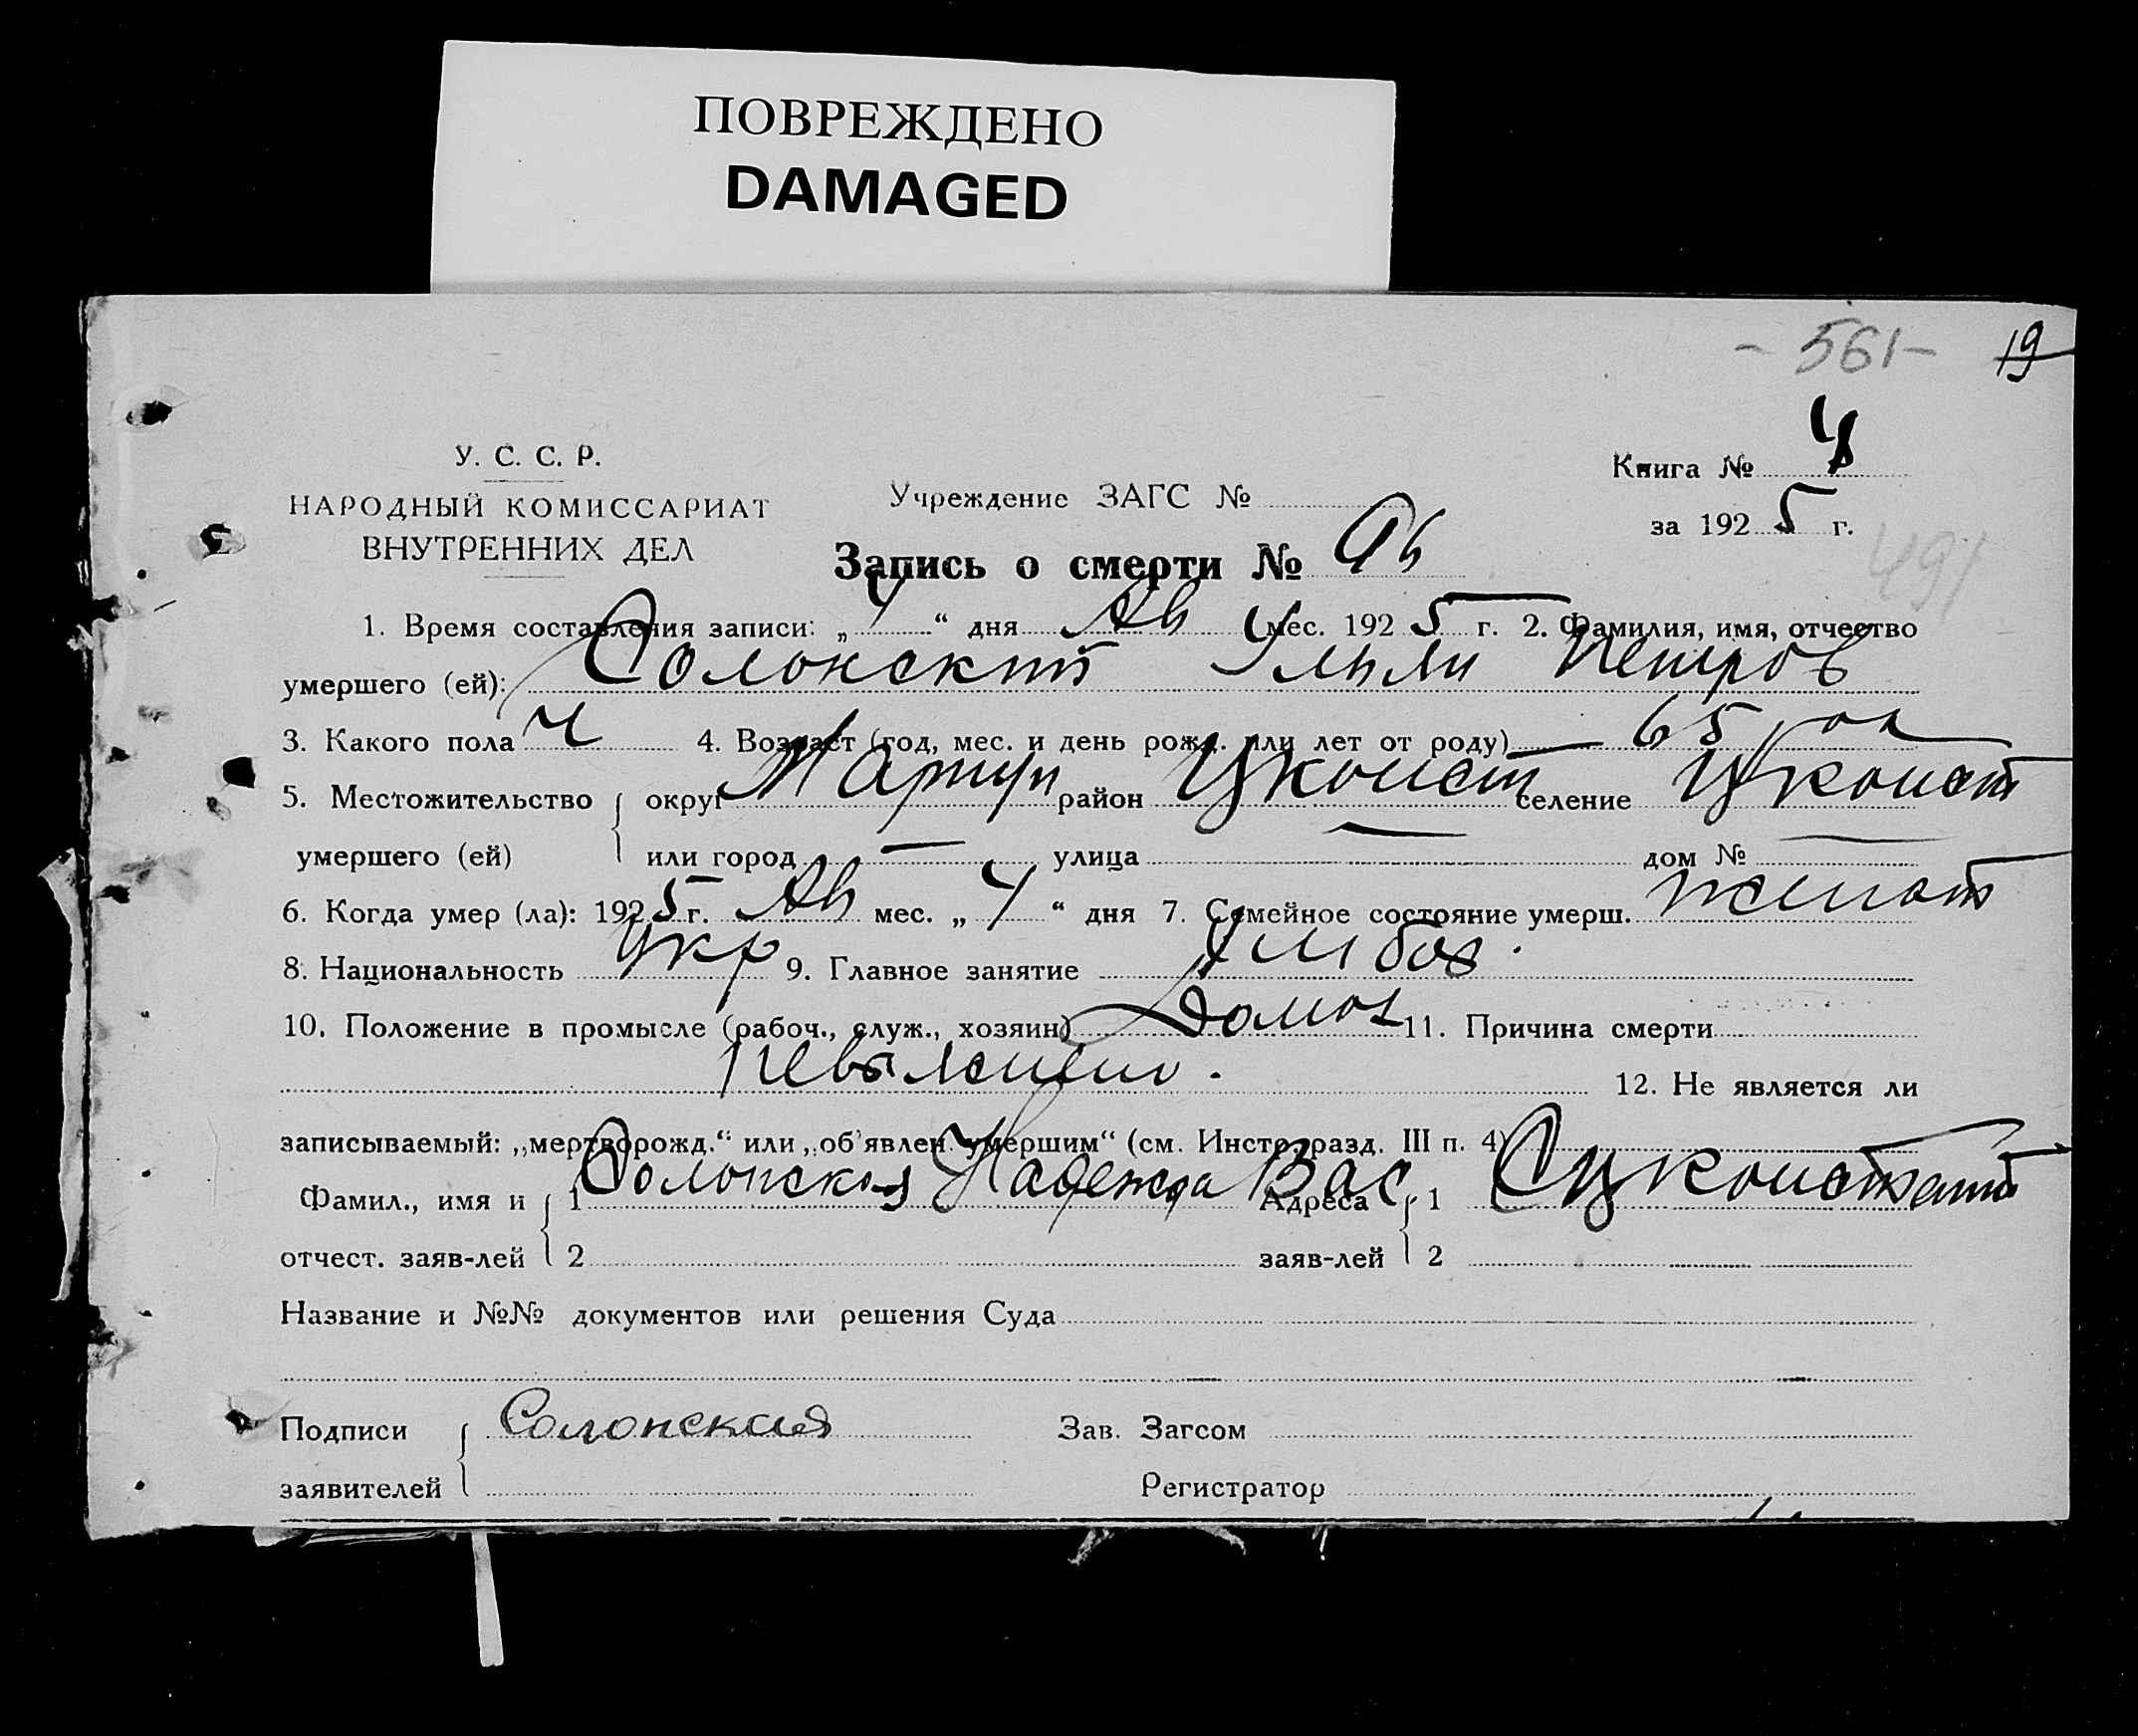 ПОВРЕЖДЕНО
DAMAGED
- 561 - 19
У. С. С. Р.
НАРОДНЫЙ КОМИССАРИАТ
ВНУТРЕННИХ ДЕЛ
Учреждение ЗАГС №
Книга № 4
за 1925 г.
491
Запись о смерти №
1. Время составления записи: „4“ дня Ав мес. 1925 г. 2. Фамилия, имя, отчество
умершего (ей): Солонский Петров
3. Какого пола ч 4. Возраст (год, мес. и день рожд. или лет от роду) 65
5. Местожительство округ Мариуп район Цконст селение Цконст
умершего (ей) или город — улица — дом № —
6. Когда умер (ла): 1925 г. Ав мес. „4“ дня 7. Семейное состояние умерш. женат
8. Национальность Укр 9. Главное занятие хлибоз.
10. Положение в промысле (рабоч., служ., хозяин) Домох 11. Причина смерти
12. Не является ли
записываемый: „мертворожд.“ или „об'явлен. умершим“ (см. Инстр. разд. III п. 4)
Фамил., имя и 1 Солонская Надежда Вас Адреса 1 С Цконстант
отчест. заяв-лей 2 заяв-лей 2
Название и №№ документов или решения Суда
Подписи Солонская Зав. Загсом
заявителей Регистратор